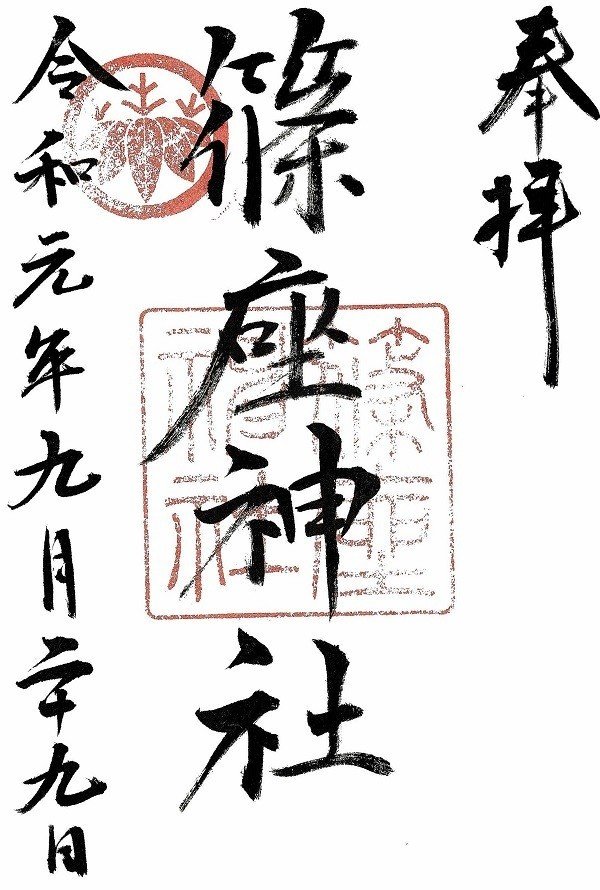 奉拝
篠座神社
篠座神社
令和元年九月二十九日